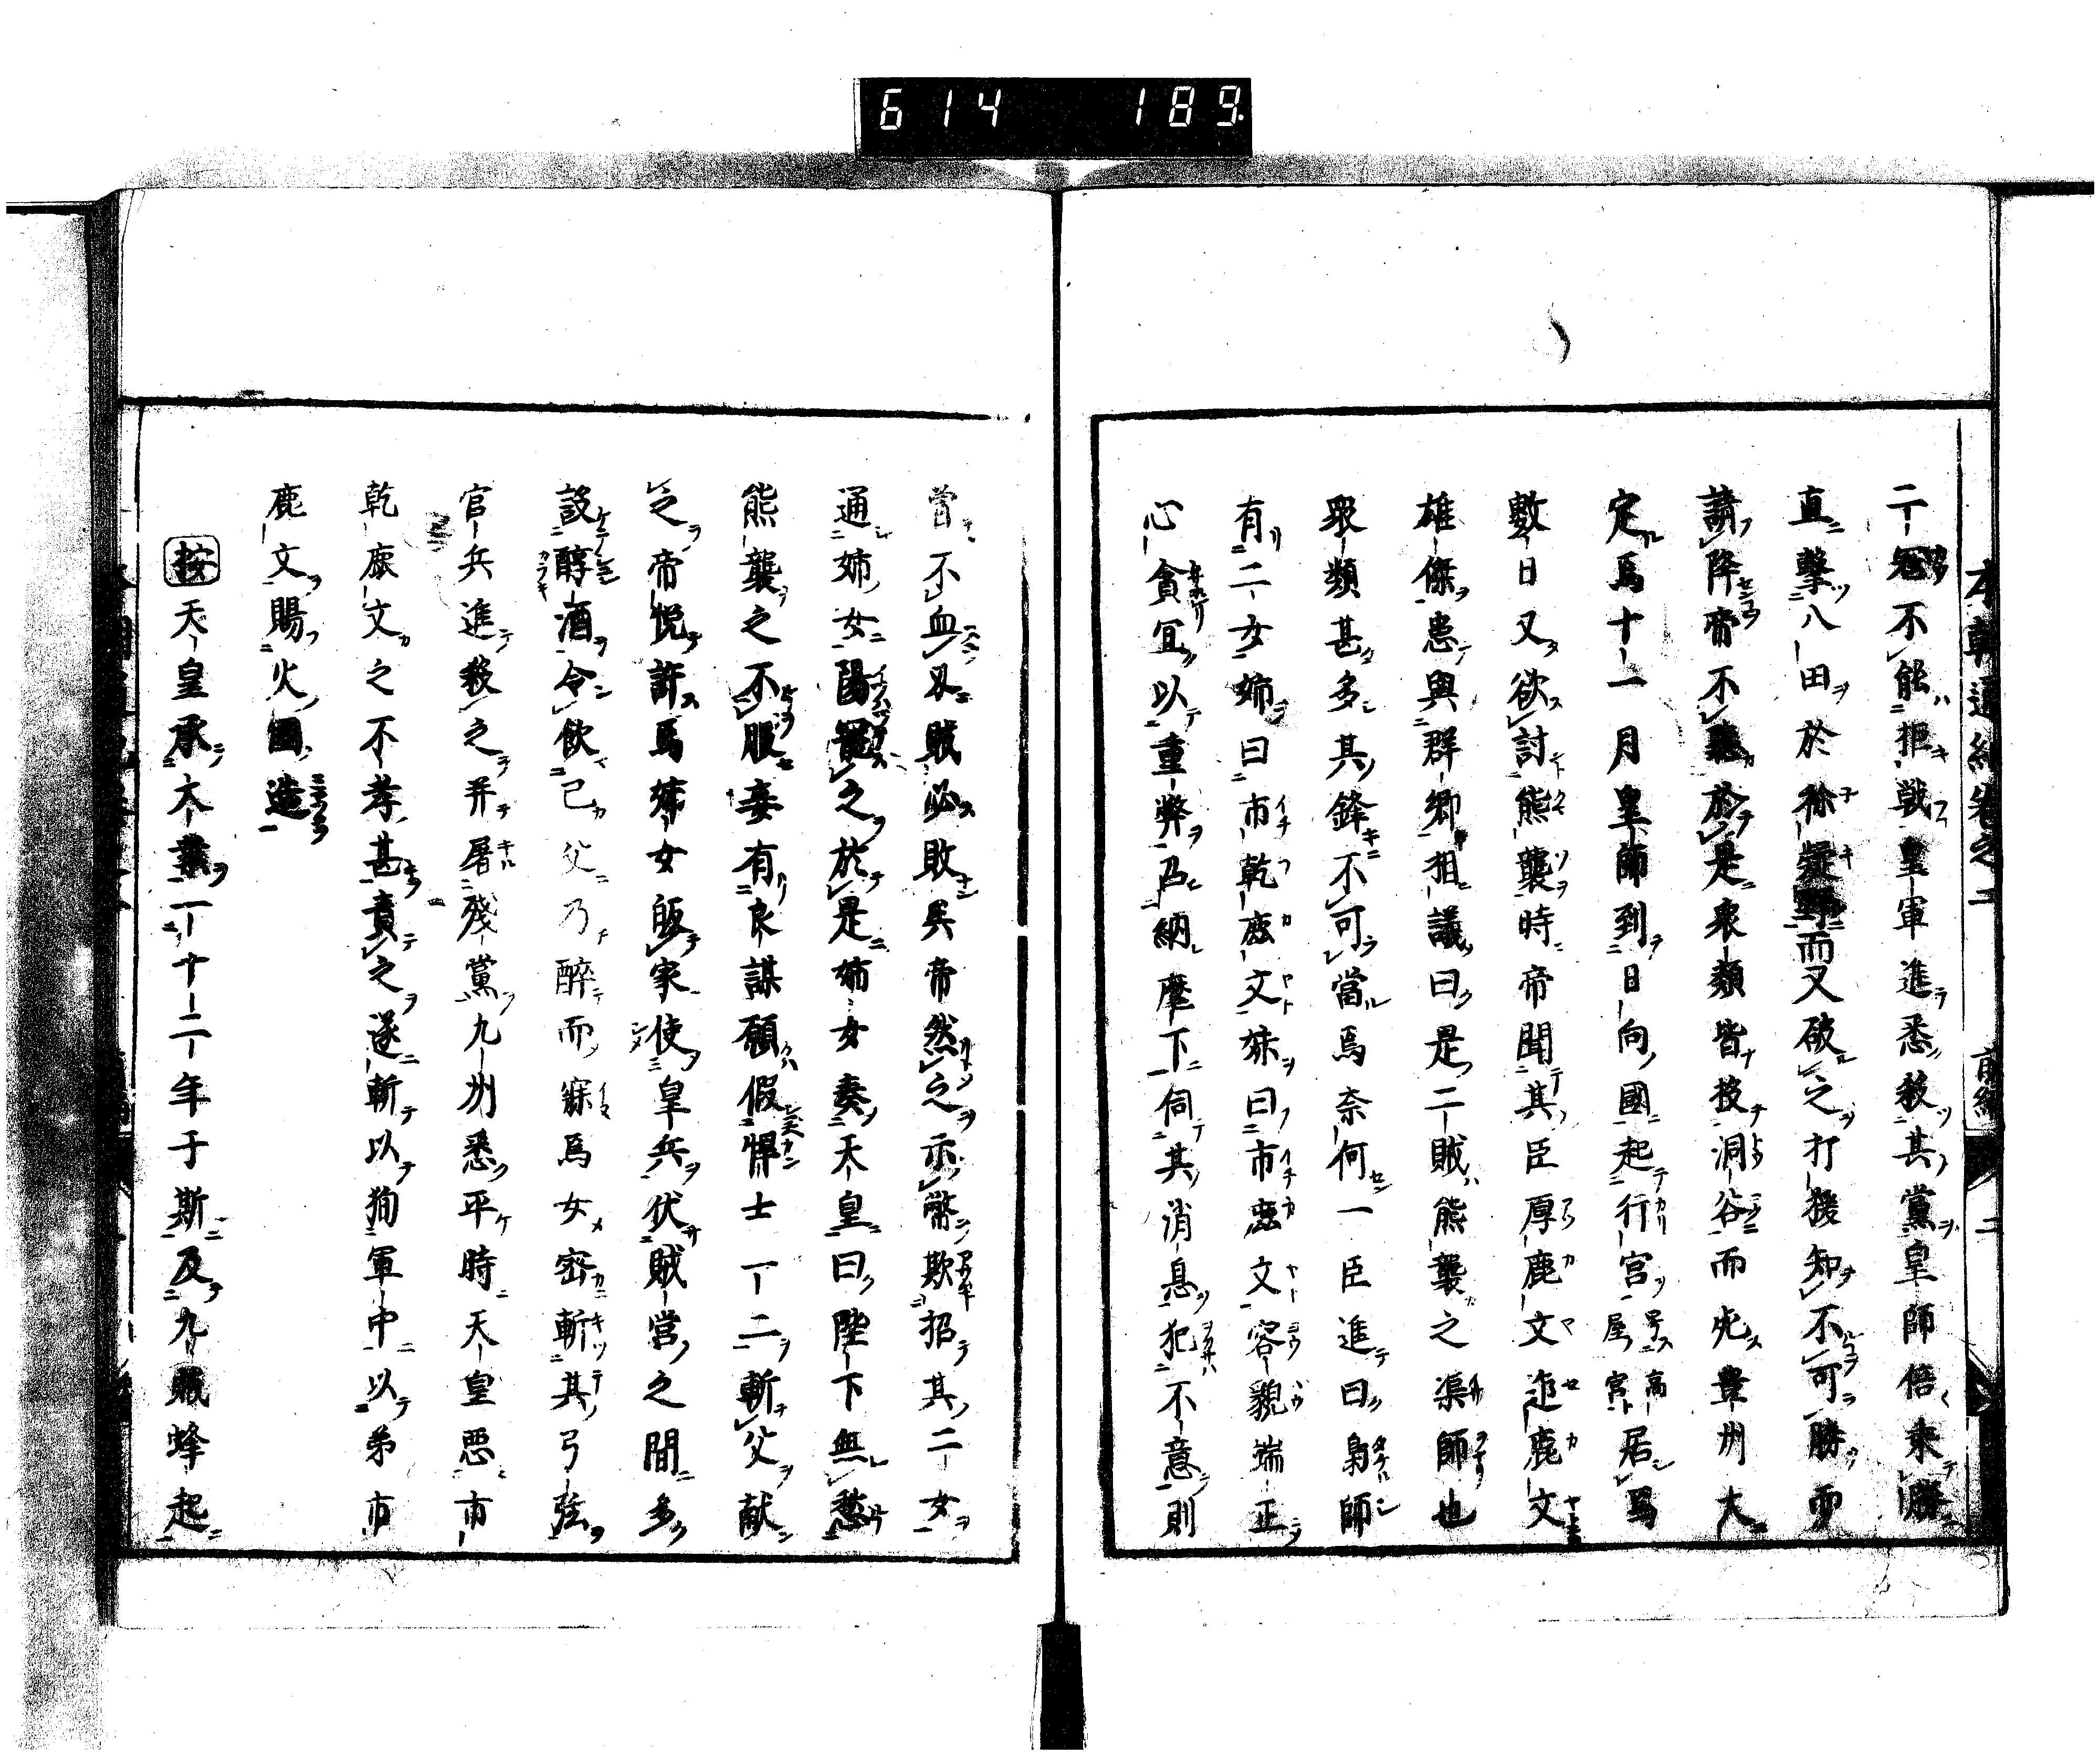 614 189
本朝通紀卷之二 前編 二
二寇不能拒戰皇軍進悉殺其黨皇師倍乘勝
直擊八田於祢疑野而又破之打猨知不可勝而
請降帝不聽於是衆類皆投洞谷而死豊州大
定焉十一月皇師到日向國起行宮号高屋宮居焉
數日又欲討熊襲時帝聞其臣厚鹿文迮鹿文
雄傑患與群卿相議曰是二賊熊襲之渠師也
衆類甚多其鋒不可當焉奈何一臣進曰梟師
有二女姉曰市乾鹿文妹曰市鹿文容貌端正
心貪宜以重弊乃納麾下伺其消息犯不意則
曽不血刄賊必敗矣帝然之示幣欺招其二女
通姉女陽寵之於是姉女奏天皇曰陛下無愁
熊襲之不服妾有良謀願假悍士一二斬父献
之帝悦許焉姉女皈家使皇兵伏賊営之間多
設醇酒令飲己父乃醉而寐焉女密斬其弓弦
官兵進殺之并屠殘黨九州悉平時天皇悪市
乾鹿文之不孝甚責之遂斬以狥軍中以弟市
鹿文賜火國造
按天皇承大業一十二年于斯及九賊蜂起